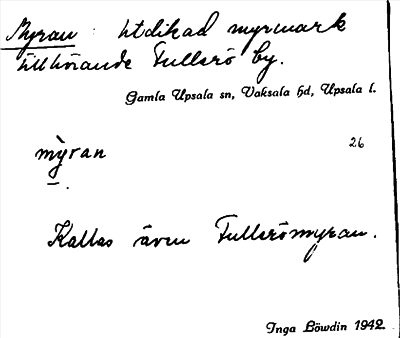 Myran : Utdikad myrmark
tillhörande Fullerö by.
Gamla Upsala sn, Vaksala hd, Upsala l.
mỳran 26
Kallas även Fullerömyran.
Inga Löwdin 1942.